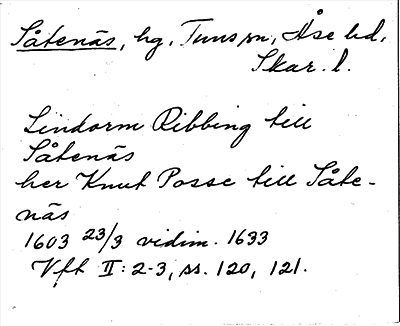 Såtenäs, hg, Tuns sn, Åse hd,
Skar. l.
Lindorm Ribbing till
Såtenäs
her Knut Posse till Såte-
näs
1603 23/3 vidim. 1633
Vft II: 2-3, ss. 120, 121.